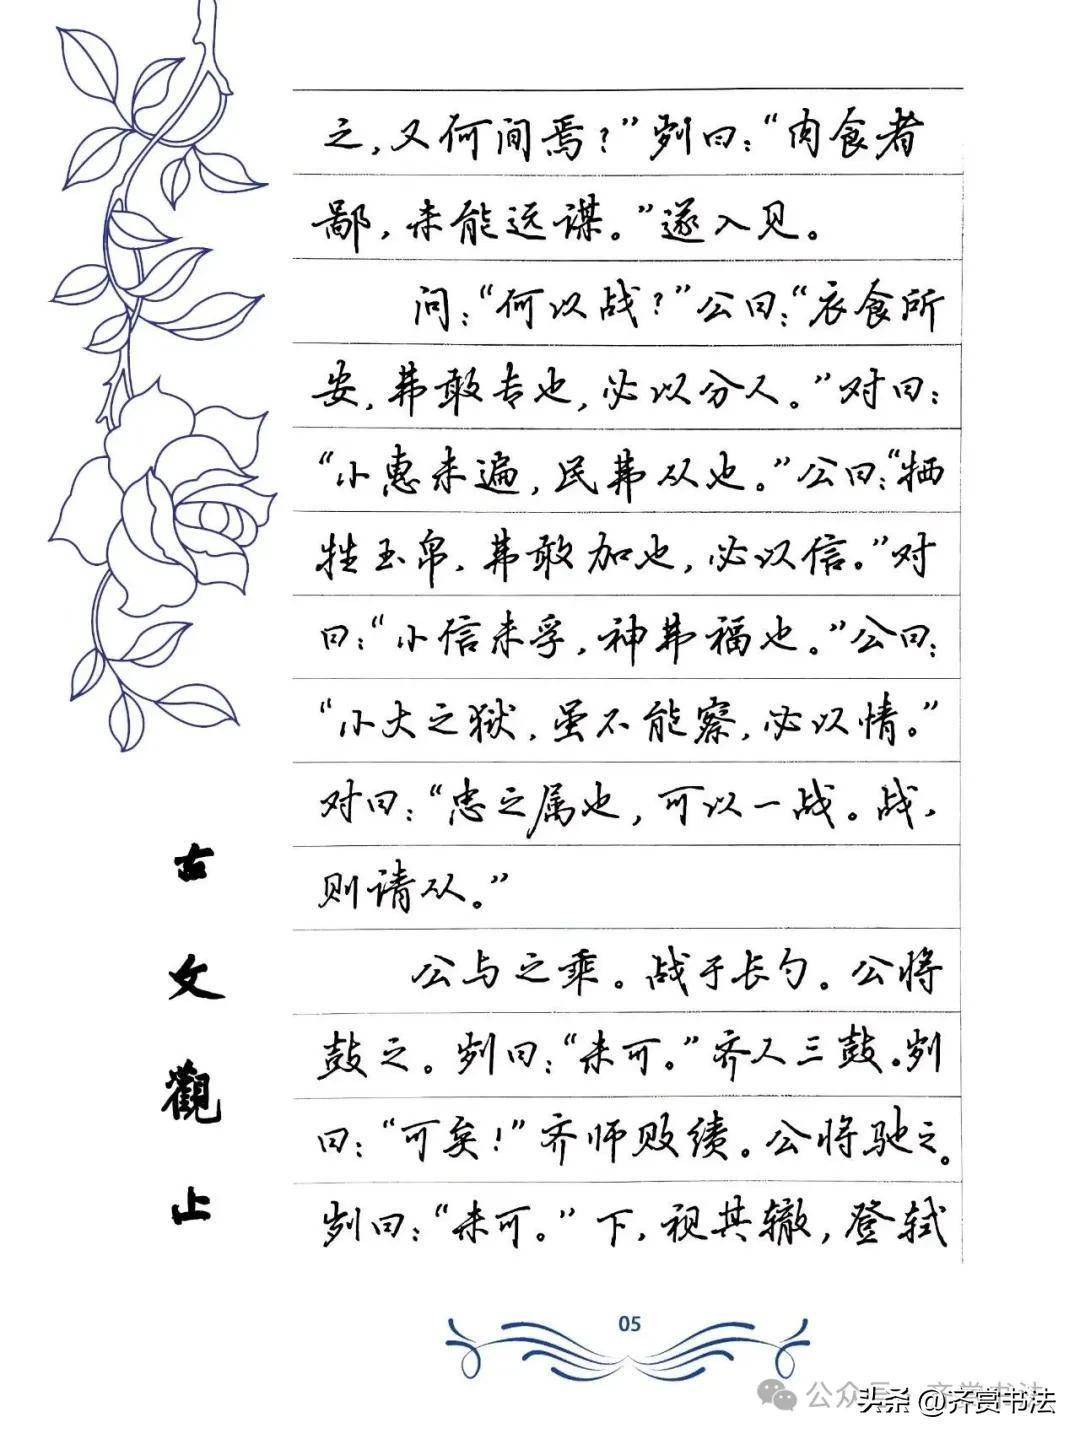 之，又何间焉？”刿曰：“肉食者
鄙，未能远谋。”遂入见。
问：“何以战？”公曰：“衣食所
安，弗敢专也，必以分人。”对曰：
“小惠未遍，民弗从也。”公曰：“牺
牲玉帛，弗敢加也，必以信。”对
曰：“小信未孚，神弗福也。”公曰：
“小大之狱，虽不能察，必以情。”
对曰：“忠之属也，可以一战。战，
则请从。”
公与之乘。战于长勺。公将
鼓之。刿曰：“未可。”齐人三鼓。刿
曰：“可矣！”齐师败绩。公将驰之。
刿曰：“未可。”下，视其辙，登轼
古文觀止
05
公众号 齐赏书法
头条 @齐赏书法